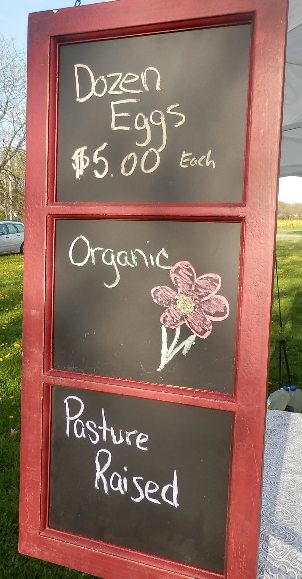 Dozen
Eggs
$5.00 Each
Organic
Pasture
Raised